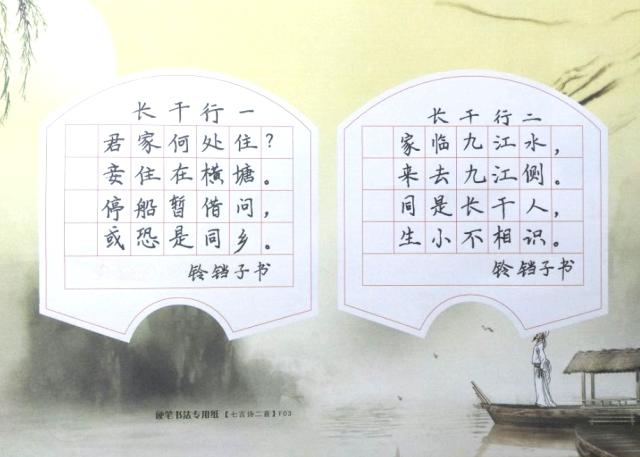 长干行一
君家何处住?
妾住在横塘。
停船暂借问,
或恐是同乡。
铃铛子书
长干行二
家临九江水,
来去九江侧。
同是长干人,
生小不相识。
铃铛子书
硬笔书法专用纸【七言诗二首】F03